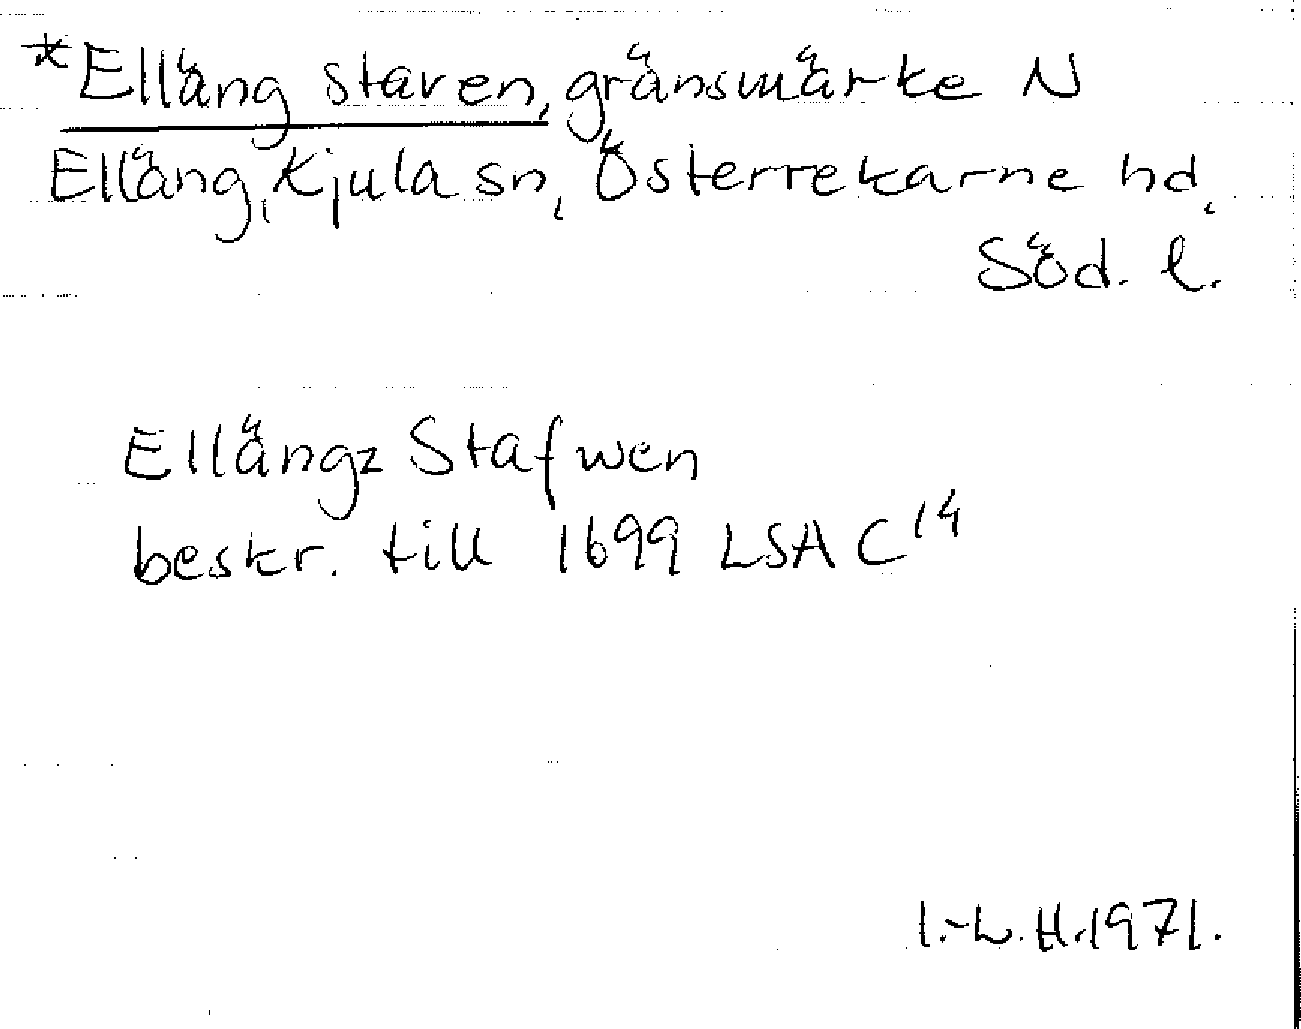 *Elläng staven, gränsmärke N
Elläng, Kjula sn, Österrekarne hd,
Söd. l.
Ellängz Stafwen
beskr. till 1699 LSA C 14
I.-L. H. 1971.